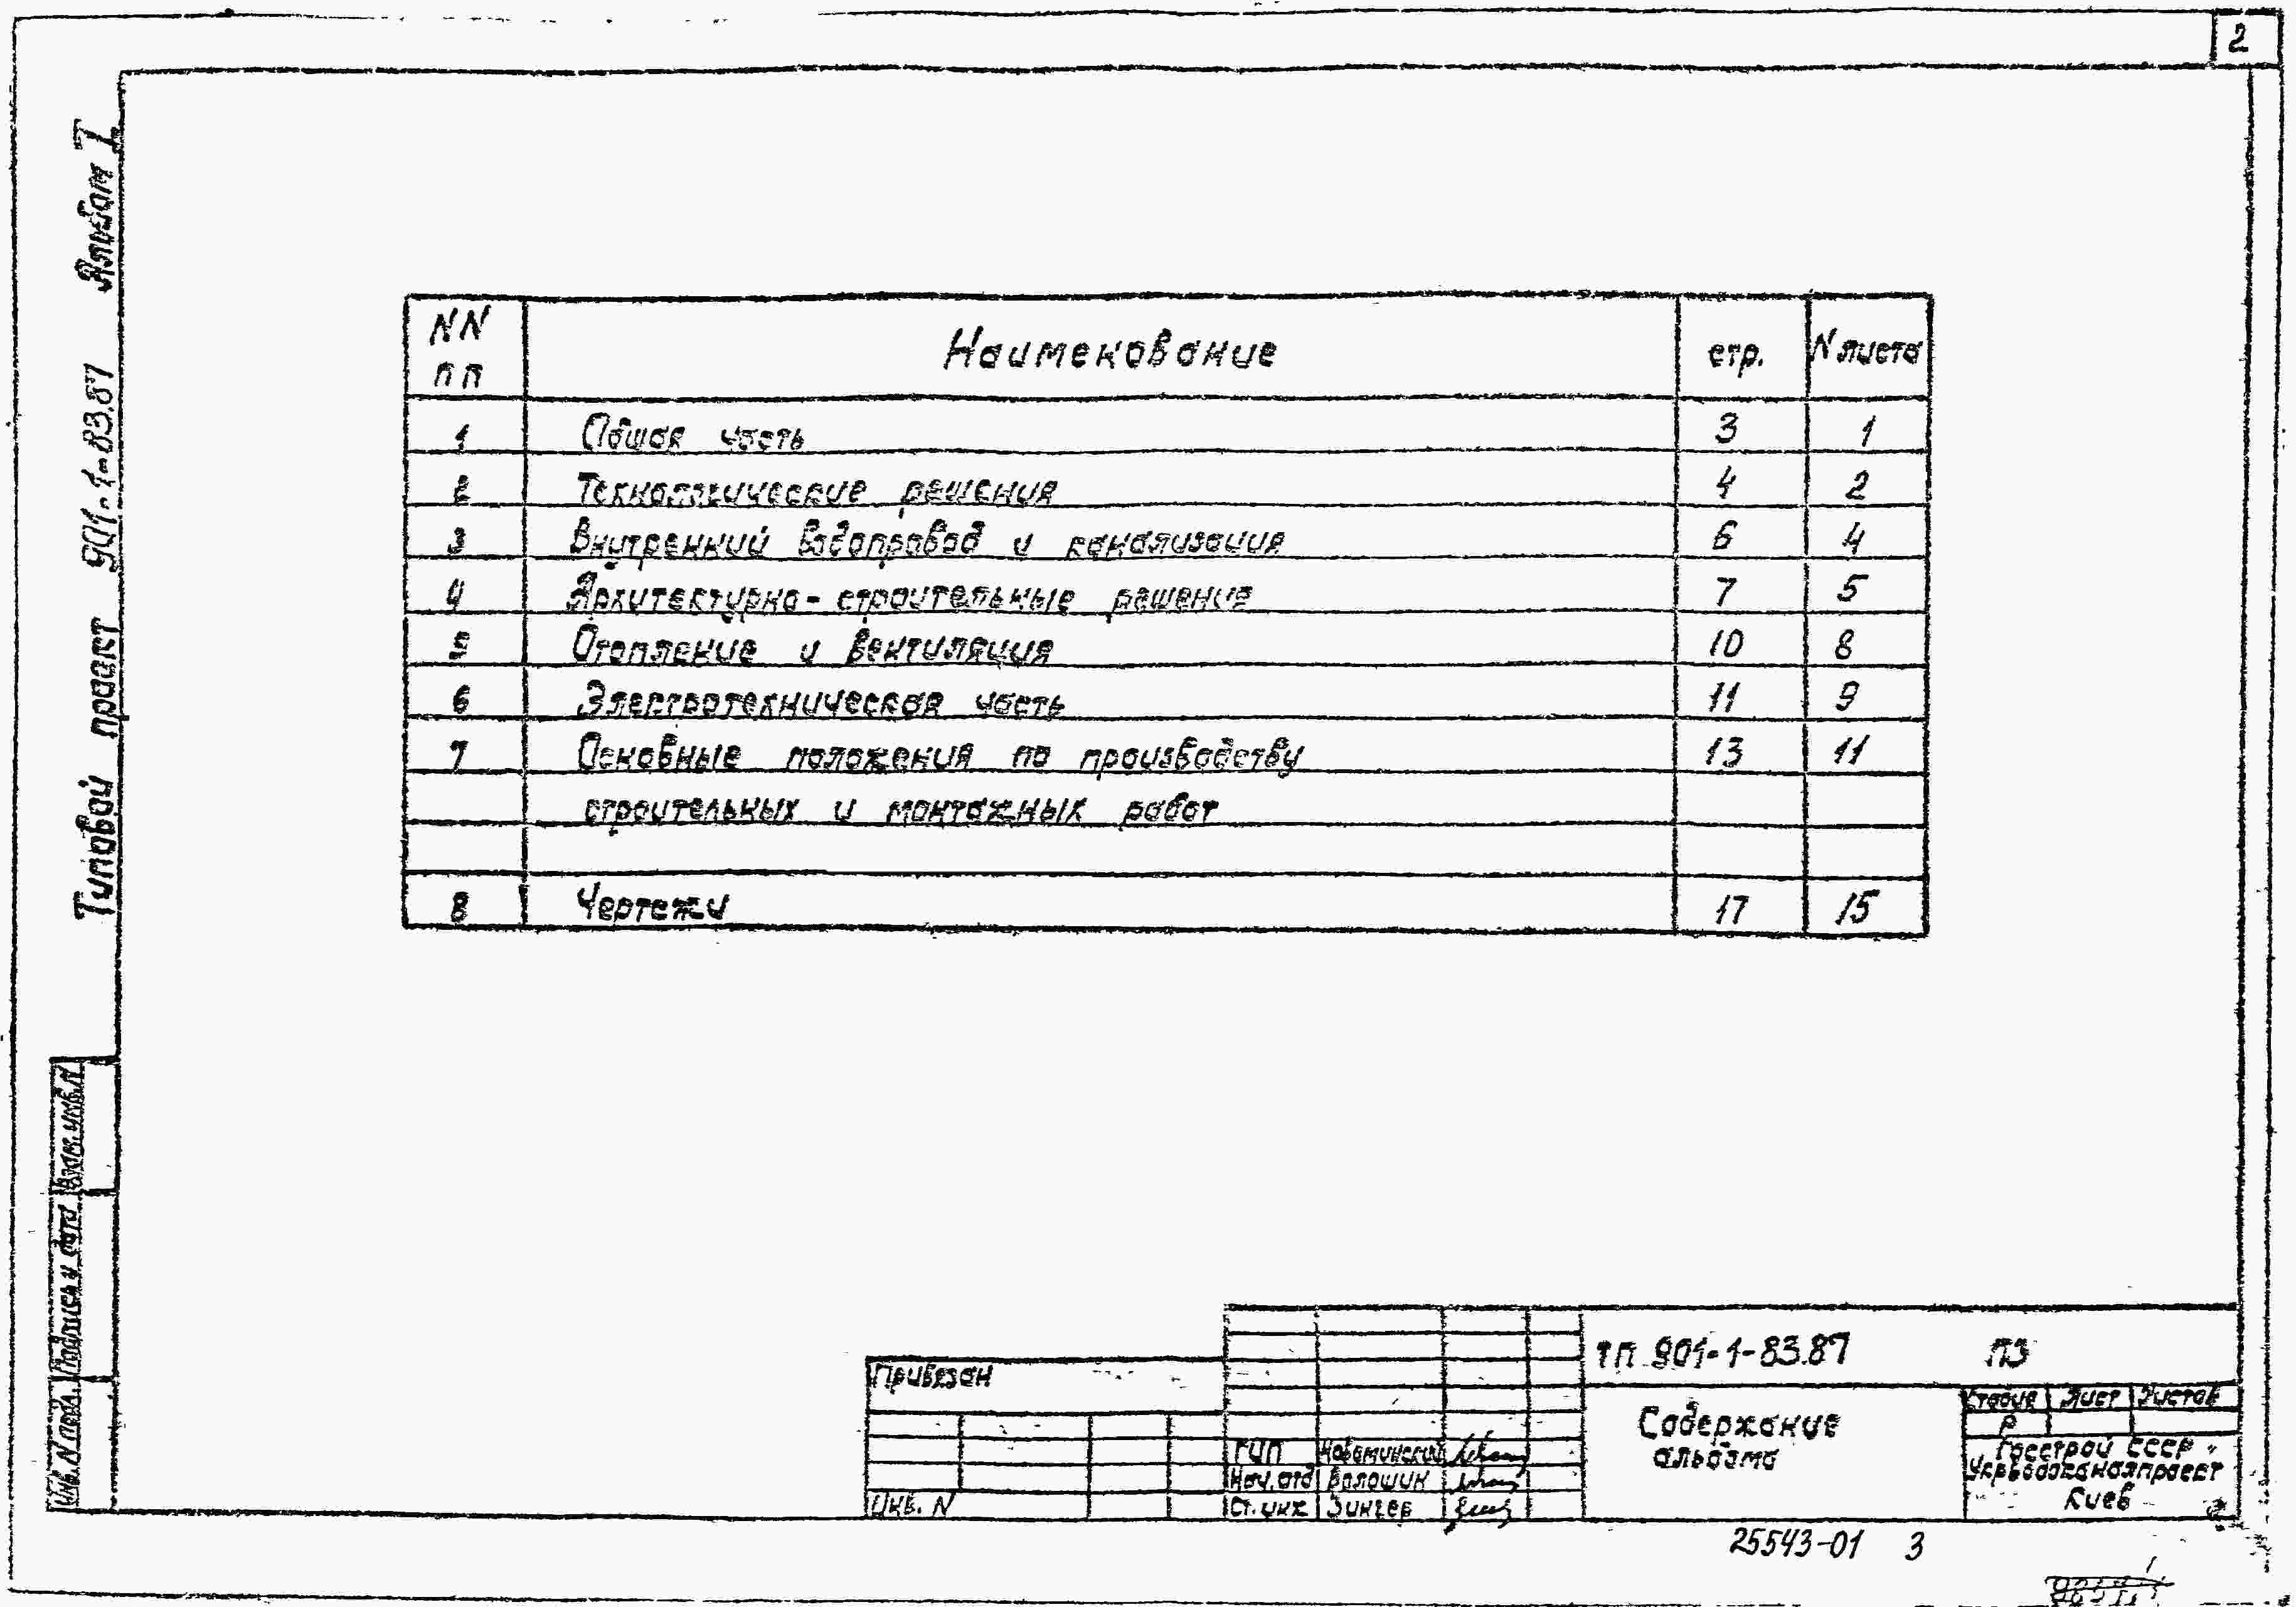 2
Типовой проект 901-1-83.87 Альбом I
NN пп Наименование стр. N листа
1 Общая часть 3 1
2 Технологические решения 4 2
3 Внутренний водопровод и канализация 6 4
4 Архитектурно-строительные решения 7 5
5 Отопление и вентиляция 10 8
6 Электротехническая часть 11 9
7 Основные положения по производству 13 11
строительных и монтажных работ
8 Чертежи 17 15
Инв. N подл. Подпись и дата Взам. инв. N
Привязан
Инв. N
ГИП
Нач. отд Волошин
Ст. инж Зингер
ТП 901-1-83.87 ПЗ
Содержание
альбома
Стадия Лист Листов
Р
Госстрой СССР
Укрводоканалпроект
Киев
25543-01 3